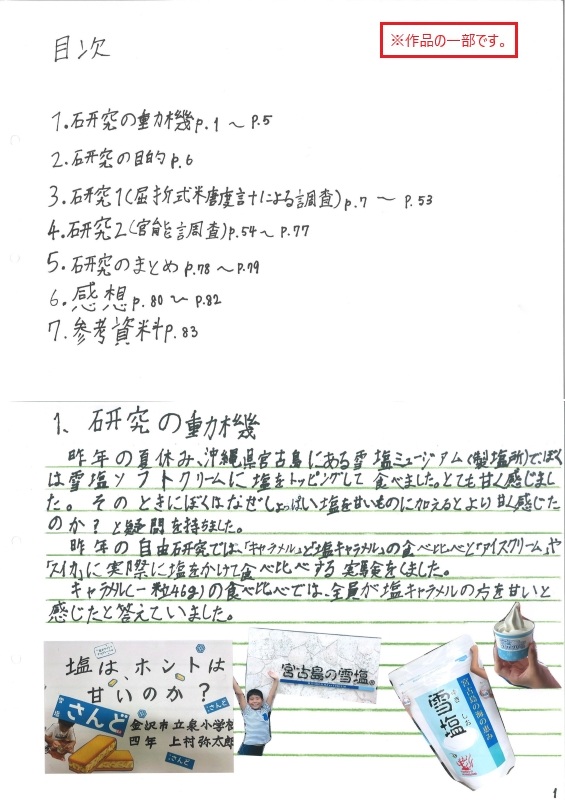 ※作品の一部です。
目次
1.研究の動機p.1～p.5
2.研究の目的p.6
3.研究1(屈折式糖度計による調査)p.7～p.53
4.研究2(官能調査)p.54～p.77
5.研究のまとめp.78～p.79
6.感想p.80～p.82
7.参考資料p.83
1、研究の動機
昨年の夏休み、沖縄県宮古島にある雪塩ミュージアム(製塩所)でぼく
は雪塩ソフトクリームに塩をトッピングして食べました。とても甘く感じまし
た。そのときにぼくはなぜしょっぱい塩を甘いものに加えるとより甘く感じた
のか?と疑問を持ちました。
昨年の自由研究では、「キャラメル」と「塩キャラメル」の食べ比べと「アイスクリーム」や
「スイカ」に実際に塩をかけて食べ比べする実験をしました。
キャラメル(一粒4.6g)の食べ比べでは、全員が塩キャラメルの方を甘いと
感じたと答えていました。
塩は、ホントは
甘いのか?
さんど
金沢市立泉小学校
四年 上村弥太郎
さんど
宮古島の雪塩
宮古島の海の恵み
雪塩
ゆき
しお
1